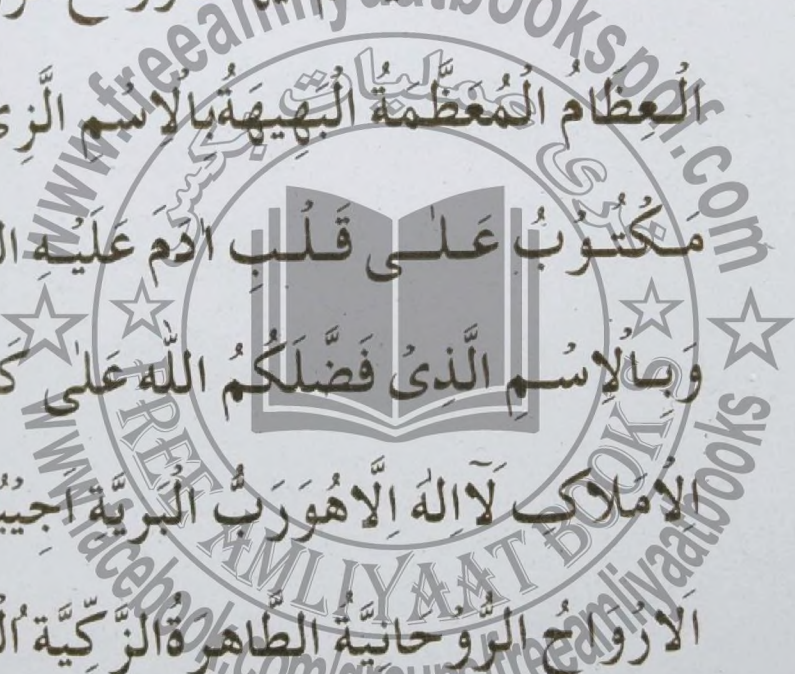 الْعِظَامُ الْمُعَظَّمَةُ الْبَهِيهَةُبِالْاِسْمِ الَّزِى
مَكْتُوْبُ عَلٰى قَلْبِ اٰدَمَ عَلَيْهِ
وَبِالْاِسْمِ الَّذِىْ فَضَّلَكُمُ اللّٰه عَلٰى
الْاَمْلَاكِ لَآاِلٰهَ اِلَّاهُوَرَبُّ الْبَرِيَّةِ
اَلاَرْوَاحُ الرُّوْحَانِيَّةُ الطَّاهِرَةُالزَّكِّيَّةُ
www.freeamliyaatbookspdf.com
عملیات
فری
بکس
FREE AMLIYAAT BOOKS
www.facebook.com/groups/freeamliyaatbooks